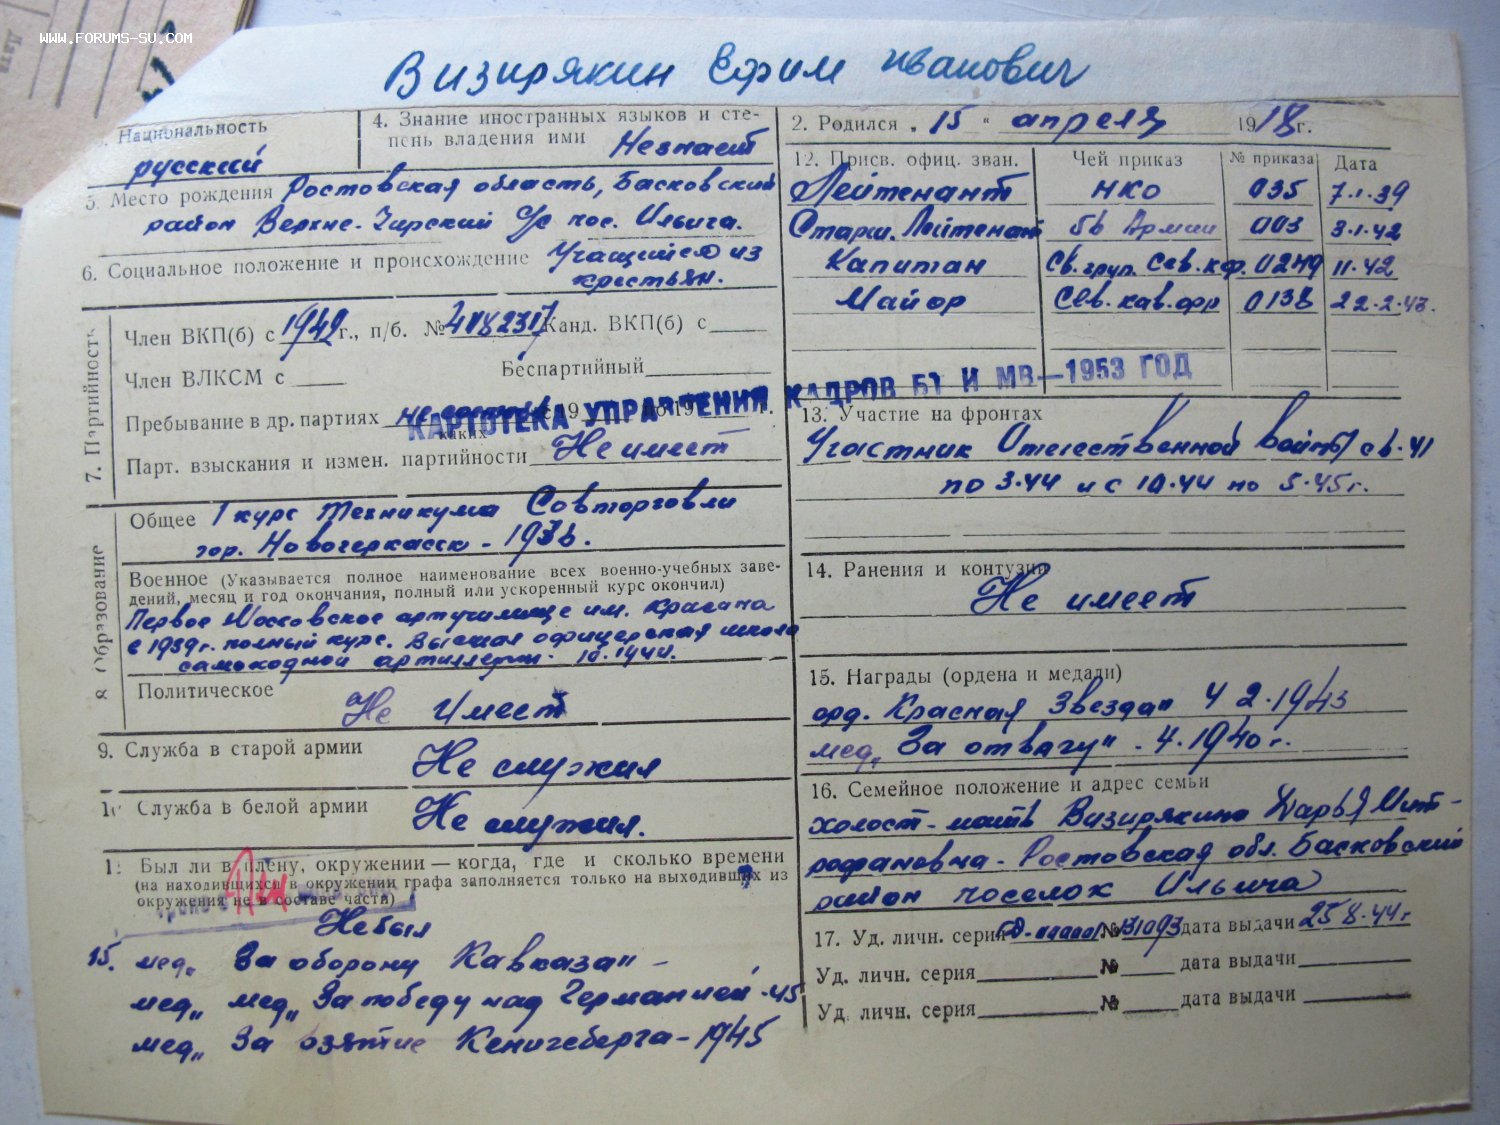 WWW.FORUMS-SU.COM
Дата
Визирякин Ефим Иванович
Национальность
русский
4. Знание иностранных языков и сте-
пень владения ими Незнает
5. Место рождения Ростовская область, Басковский
район Верхне-Чирский с/с пос. Ильича.
6. Социальное положение и происхождение Учащийся из
крестьян.
7. Партийность
Член ВКП(б) с 1942 г., п/б. № 4182317 Канд. ВКП(б) с
Член ВЛКСМ с
Беспартийный
Пребывание в др. партиях не состоял с 19 по 19 г.
каких
КАРТОТЕКА УПРАВЛЕНИЯ КАДРОВ БТ И МВ—1953 ГОД
Парт. взыскания и измен. партийности Не имеет
8. Образование
Общее 1 курс техникума Совторговли
гор. Новочеркасск - 1936.
Военное (Указывается полное наименование всех военно-учебных заве-
дений, месяц и год окончания, полный или ускоренный курс окончил)
Первое Московское артучилище им. Красина
в 1939г. полный курс. Высшая офицерская школа
самоходной артиллерии - 10.1944.
Политическое
Не имеет
9. Служба в старой армии Не служил
10 Служба в белой армии Не служил.
1 Был ли в плену, окружении — когда, где и сколько времени
(на находившихся в окружении графа заполняется только на выходивших из
окружения не в составе части)
Небыл
15. мед„ За оборону Кавказа" -
мед„ мед„ За победу над Германией -45
мед„ За взятие Кенигсберга - 1945
2. Родился „ 15 " апреля 1918 г.
12. Присв. офиц. зван. Чей приказ № приказа Дата
Лейтенант НКО 035 7.1.39
Старш. Лейтенант 56 Армии 003 3.1.42
Капитан Св. груп. Сев.Кф. 0249 11.42
Майор Сев. кав. фр 0138 22.2.43.
13. Участие на фронтах
Участник Отечественной войны с 6.41
по 3.44 и с 10.44 по 5.45г.
14. Ранения и контузии
Не имеет
15. Награды (ордена и медали)
орд. Красная Звезда" 4 2.1943
мед„ За отвагу" - 4.1940г.
16. Семейное положение и адрес семьи
холост - мать Визирякина Дарья Мит-
рофановна - Ростовская обл. Басковский
район поселок Ильича
17. Уд. личн. серия № 131093 дата выдачи 25 8.44г
Уд. личн. серия № дата выдачи
Уд. личн. серия № дата выдачи